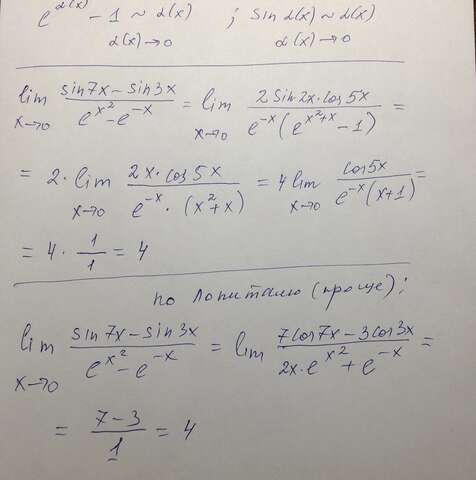 e^{α(x)} - 1 ~ α(x) ; sin α(x) ~ α(x)
α(x)→0 α(x)→0
lim_{x→0} (sin7x - sin3x)/(e^{x^2} - e^{-x}) = lim_{x→0} (2 sin2x · cos5x)/(e^{-x}(e^{x^2+x} - 1)) =
= 2 · lim_{x→0} (2x · cos5x)/(e^{-x} · (x^2+x)) = 4 lim_{x→0} (cos5x)/(e^{-x}(x+1)) =
= 4 · 1/1 = 4
по Лопиталю (проще):
lim_{x→0} (sin7x - sin3x)/(e^{x^2} - e^{-x}) = lim (7cos7x - 3cos3x)/(2x·e^{x^2} + e^{-x}) =
= (7-3)/1 = 4